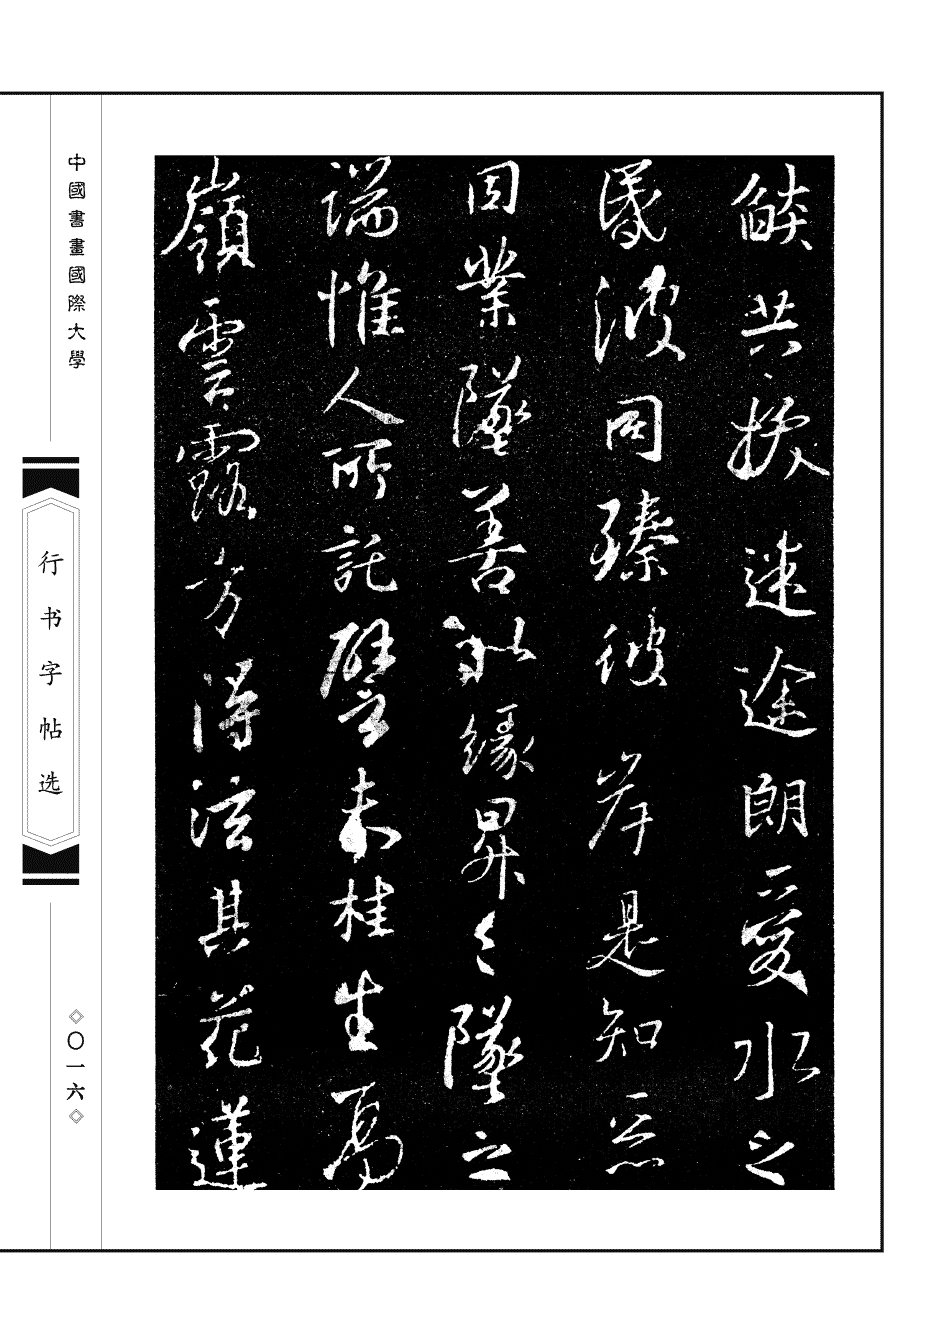 燄共拔迷途朗愛水之
昬波同臻彼岸是知惡
因業墜善以緣昇々墜之
端惟人所託譬夫桂生高
嶺雲露方得泫其花蓮
中國書畫國際大學
行书字帖选
〇一六